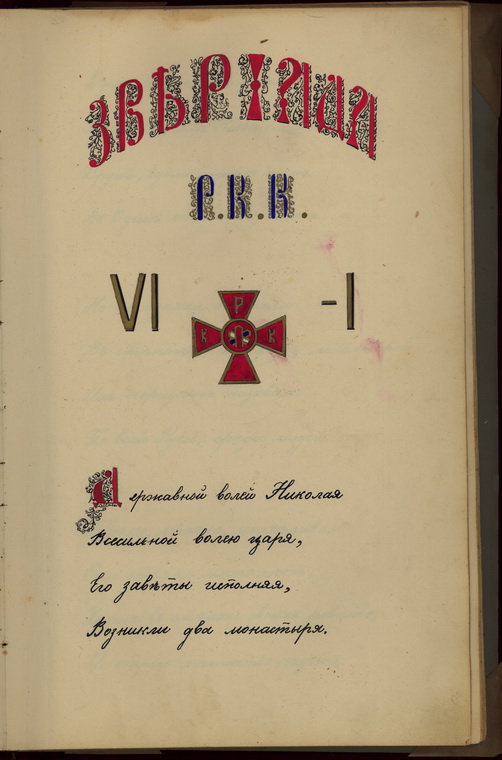 ЗВѢРІАДА
Р.К.К.
VI -I
Р
К К К
Державной волей Николая
Всесильной волею царя,
Его завѣты исполняя,
Возникли два монастыря.